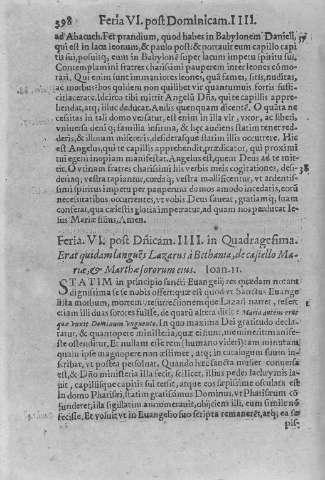 398 Feria VI. post Dominicam. IIII.
ad Abacuch. Fer prandium, quod habes in Babylonem Danieli,
qui est in lacu leonum, & paulo post: & portauit eum capillo capi
tis sui, posuitq; eum in Babylone super lacum impetu spiritus sui.
Contemplamini fratres charissimi pauperem inter leones cómo
rari. Qui enim sunt immaniores leones, quā fames, sitis, nuditas,
ac morbus: à quibus quidem non quiliber vir quantumuis fortis
citiùs laceratur. Idcirco tibi mittit Angelū Dñs, qui te capillis appre
hendat, arq; illuc deducat. Auis quemquam dicere? O quàta ne
cessitas in tali domo versatur, est enim in illa vir, vxor, ac liberi,
vniuersa deniq; familia infirma, & hęc audiens statim tener red
deris, & illorum misereri, desiderásque statim illis occurrere. Hic
est Angelus, qui te capillis apprehendit, prædicator, qui proximi
tui egeni inopiam manifestat. Angelus est, quem Deus ad te mit
tit. O vtinam fratres charissimi his verbis meis cogitationes, desi
deriaq; vestra rapianem, cordáq; vestra mollificentur, vt ardentis
simi spiritus impetu per pauperum domos amodo incedatis, eorū
necessitatibus occurrentes, vt vobis Deus faueat, gratiamq; suam
conferat, qua cælestis gloria impetratur, ad quam nos perducat Ie
sus Mariæ filius, Amen.
Feria. VI. post Dñicam. IIII. in Quadragesima.
Erat quidam languēs Lazarus à Bethania, de castello Ma-
riæ, & Marthæ sororum eius. Ioan. 11.
STATIM in principio sancti Euangelij res quædam notatu
dignissima se se nobis offert: quæ est quod vt Sanctus Euange
lista morbum, mortem, resurrectionemque Lazari narret, refert
etiam illi duas sorores fuisse, de quarū altera dicit: Maria autem erat
quæ vnxit Dominum vnguento. In quo maxima Dei gratitudo decla
ratur, & quantopere ministeria, quæ eius sunt, meminerit manife
ste ostenditur. Et nullam esse rem (humano videri) tam minutam,
qualis ipse magnopere non æstimet, atq; in catalogum suum in-
scribat, vt postea persoluat. Quando hæc sancta mulier conuersa
est, & Dño ministeria illa fecit, scilicet, illius pedes lachrymis la-
uit, capillísque capitis sui tersit, atque eos sæpissime osculata est
in domo Pharisæi, statim gratissimus Dominus, vt Pharisæum có
funderet, illa sigillatim annumerauit, obijciens illi, eum simile nó
fecisse. Et voluit, vt in Euangelio suo scripta remaneret, atq; ea sę
pis-